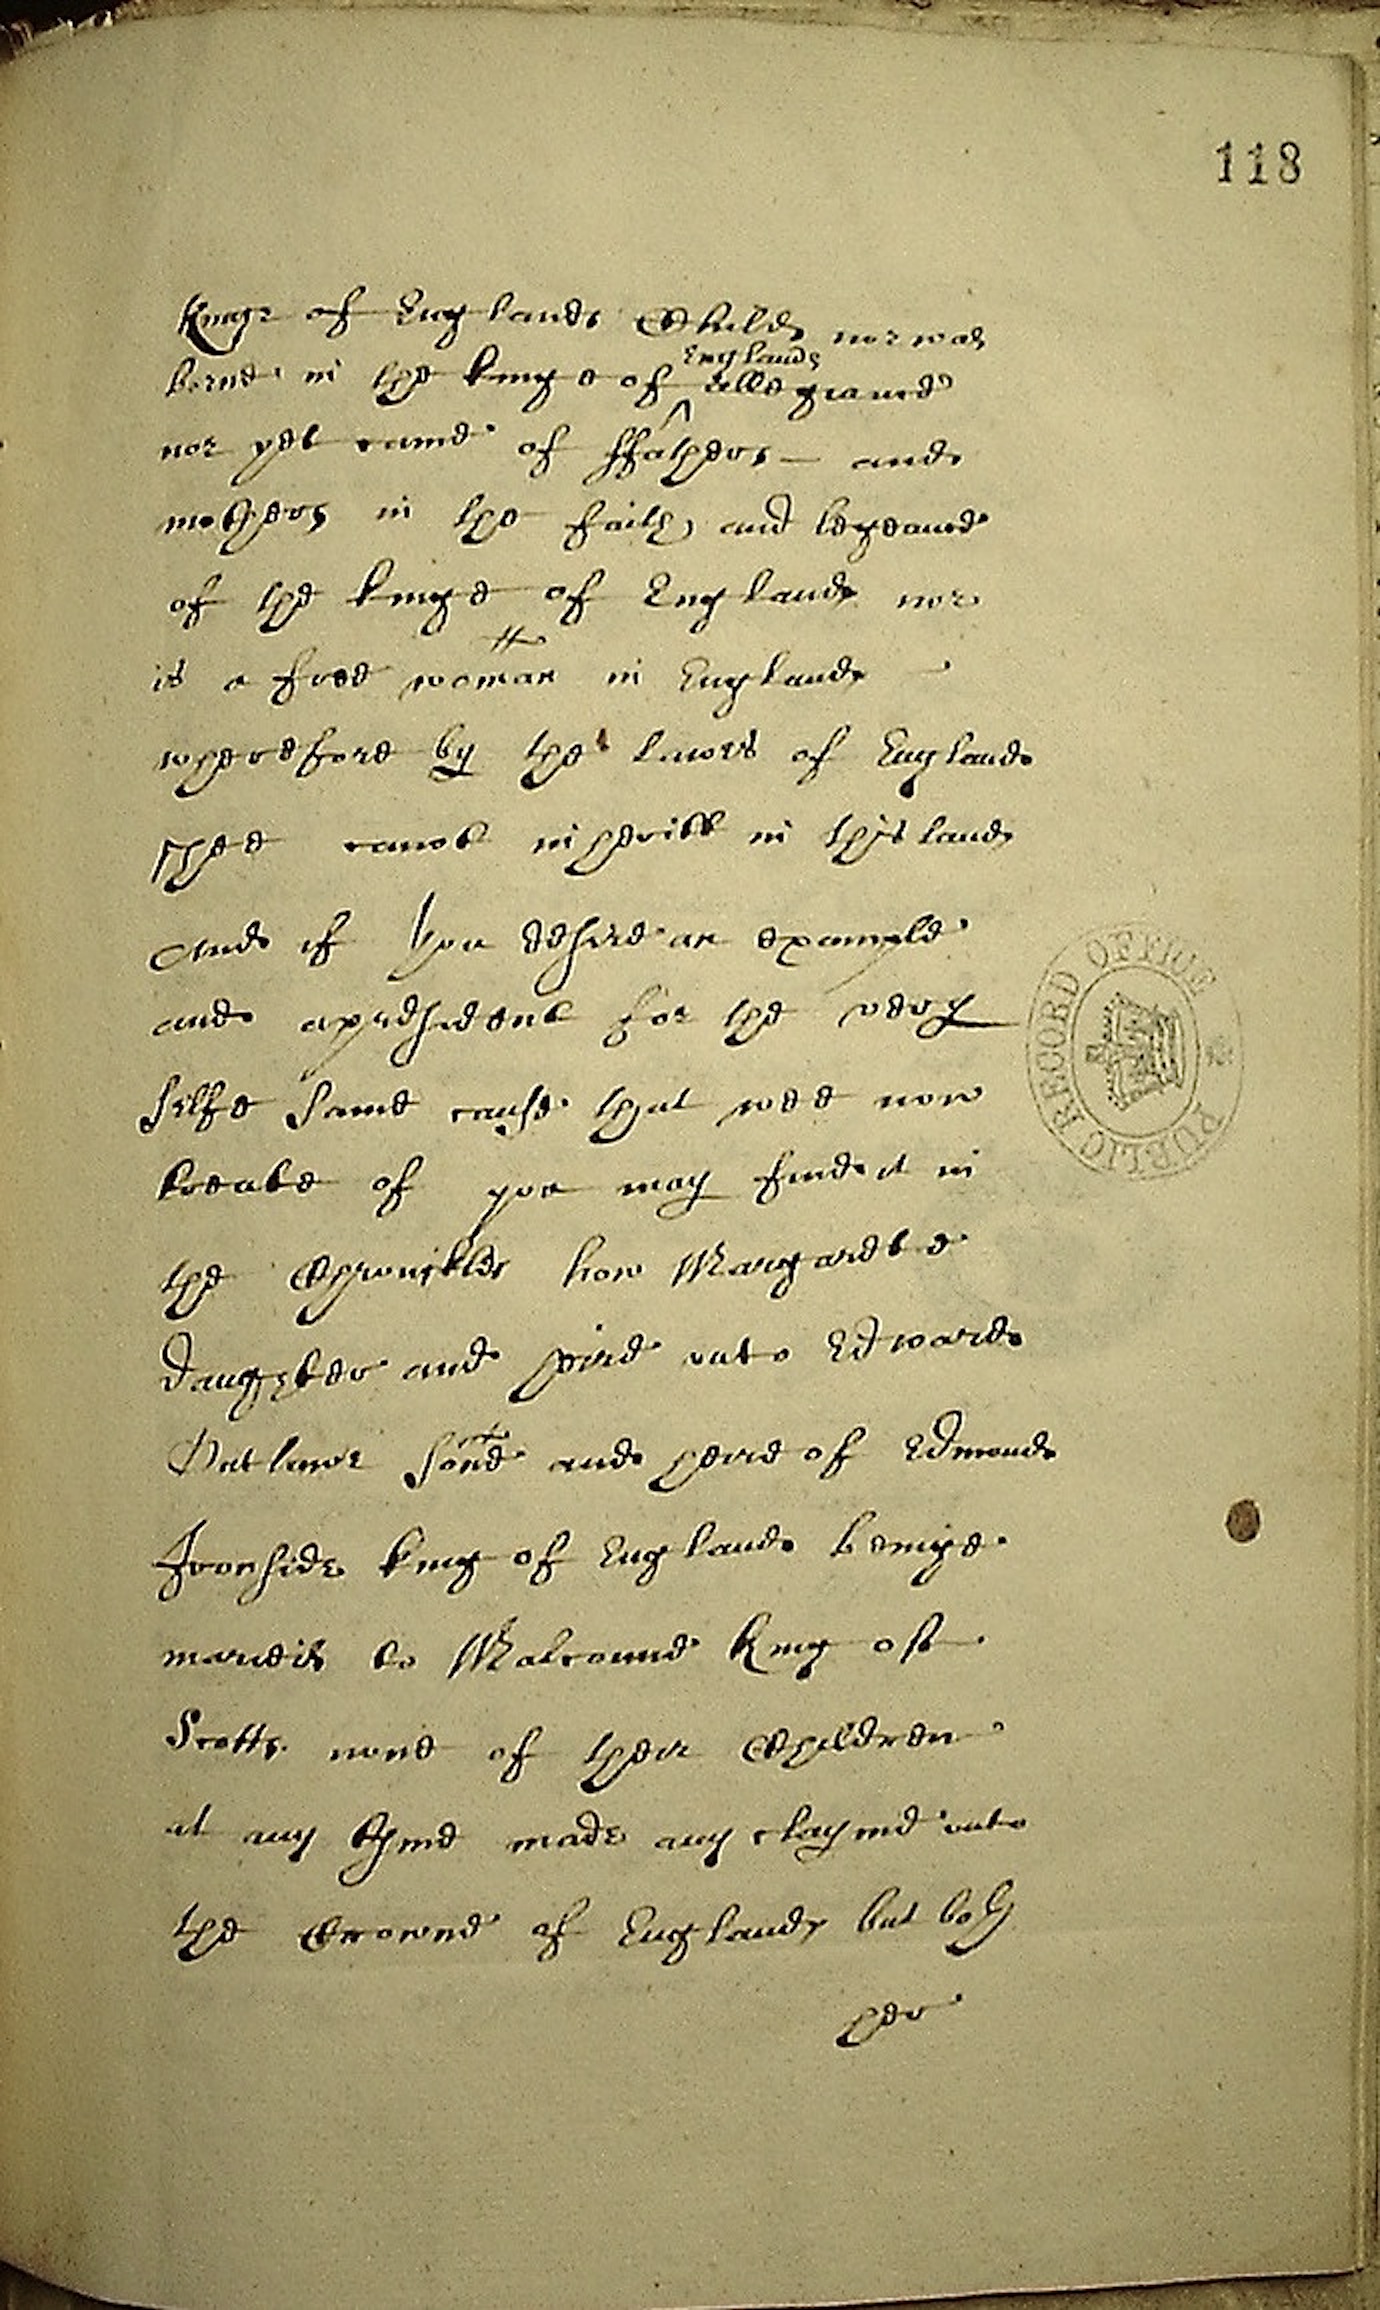 118
Kinge of Englands Child nor was
borne in the kinge of ^Englands allegiance
nor yet came of ffathers — and
mothers in the faith and legeance
of the kinge of England nor
is a free woman in England
wherefore by the lawes of England
shee canot inheritt in this land
And if you desire an example
and a presedent for the very
selfe same cause that wee now
treate of you may finde it in
the Chronikles how Margarette
daughter and heire unto Edward
Outlawe sone and heire of Edmond
Ironside king of England beinge
maried to Malcoume King of
Scotts none of their Children
at any tyme made any clayme unto
the Crowne of England but both
her
PUBLIC RECORD OFFICE